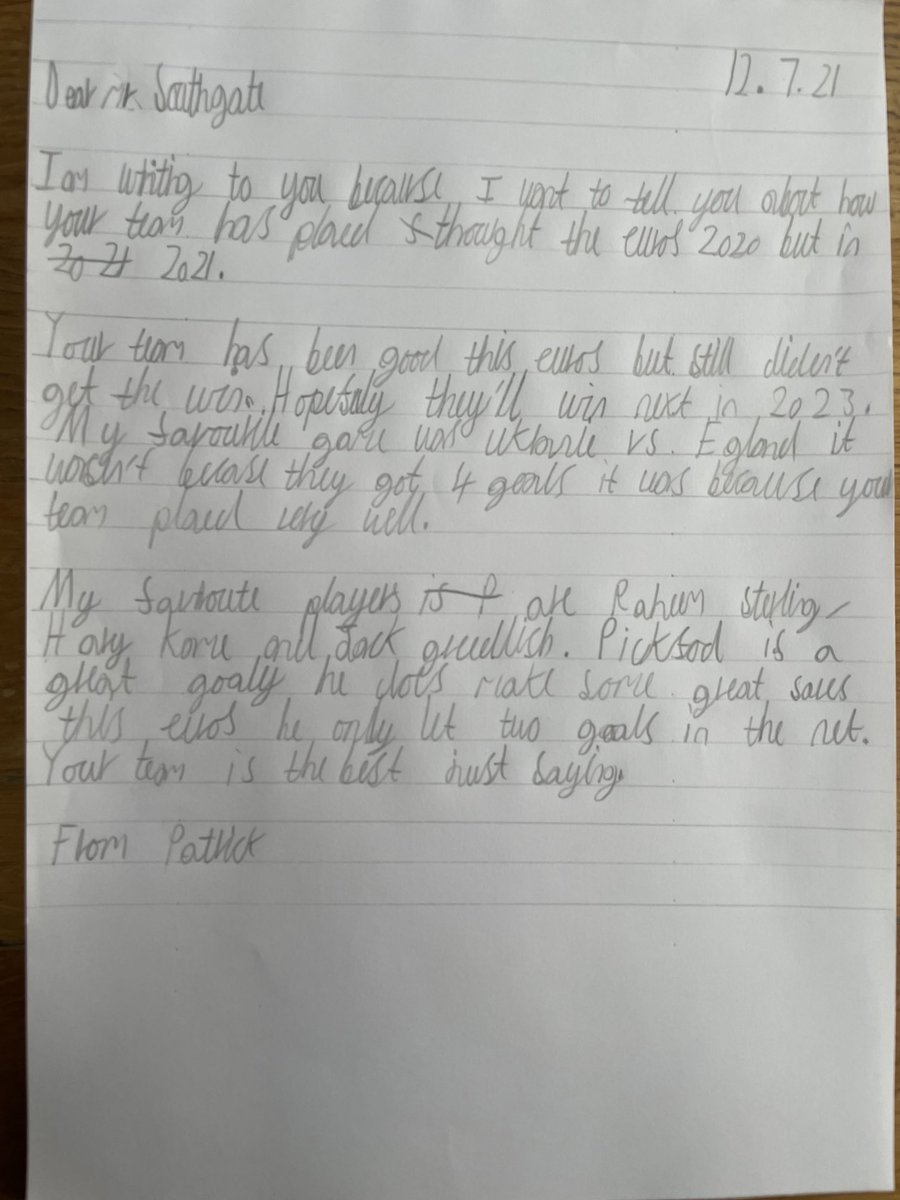 12.7.21
Dear Mr. Southgate
I am writing to you because I want to tell you about how
your team has placed thought the euros 2020 but in
20 21 2021.
Your team has been good this euros but still diden't
get the win. Hopefuly they'll win next in 2023.
My favourite game was ukranie vs. Egland it
wasn't becase they got 4 goals it was because your
team placed very well.
My favroute players is are Raheem sterling
Hary Kane and Jack greellish. Pickfod is a
great goaly he does make some great saves
this euros he only let two goals in the net.
Your team is the best just saying.
From Patrick